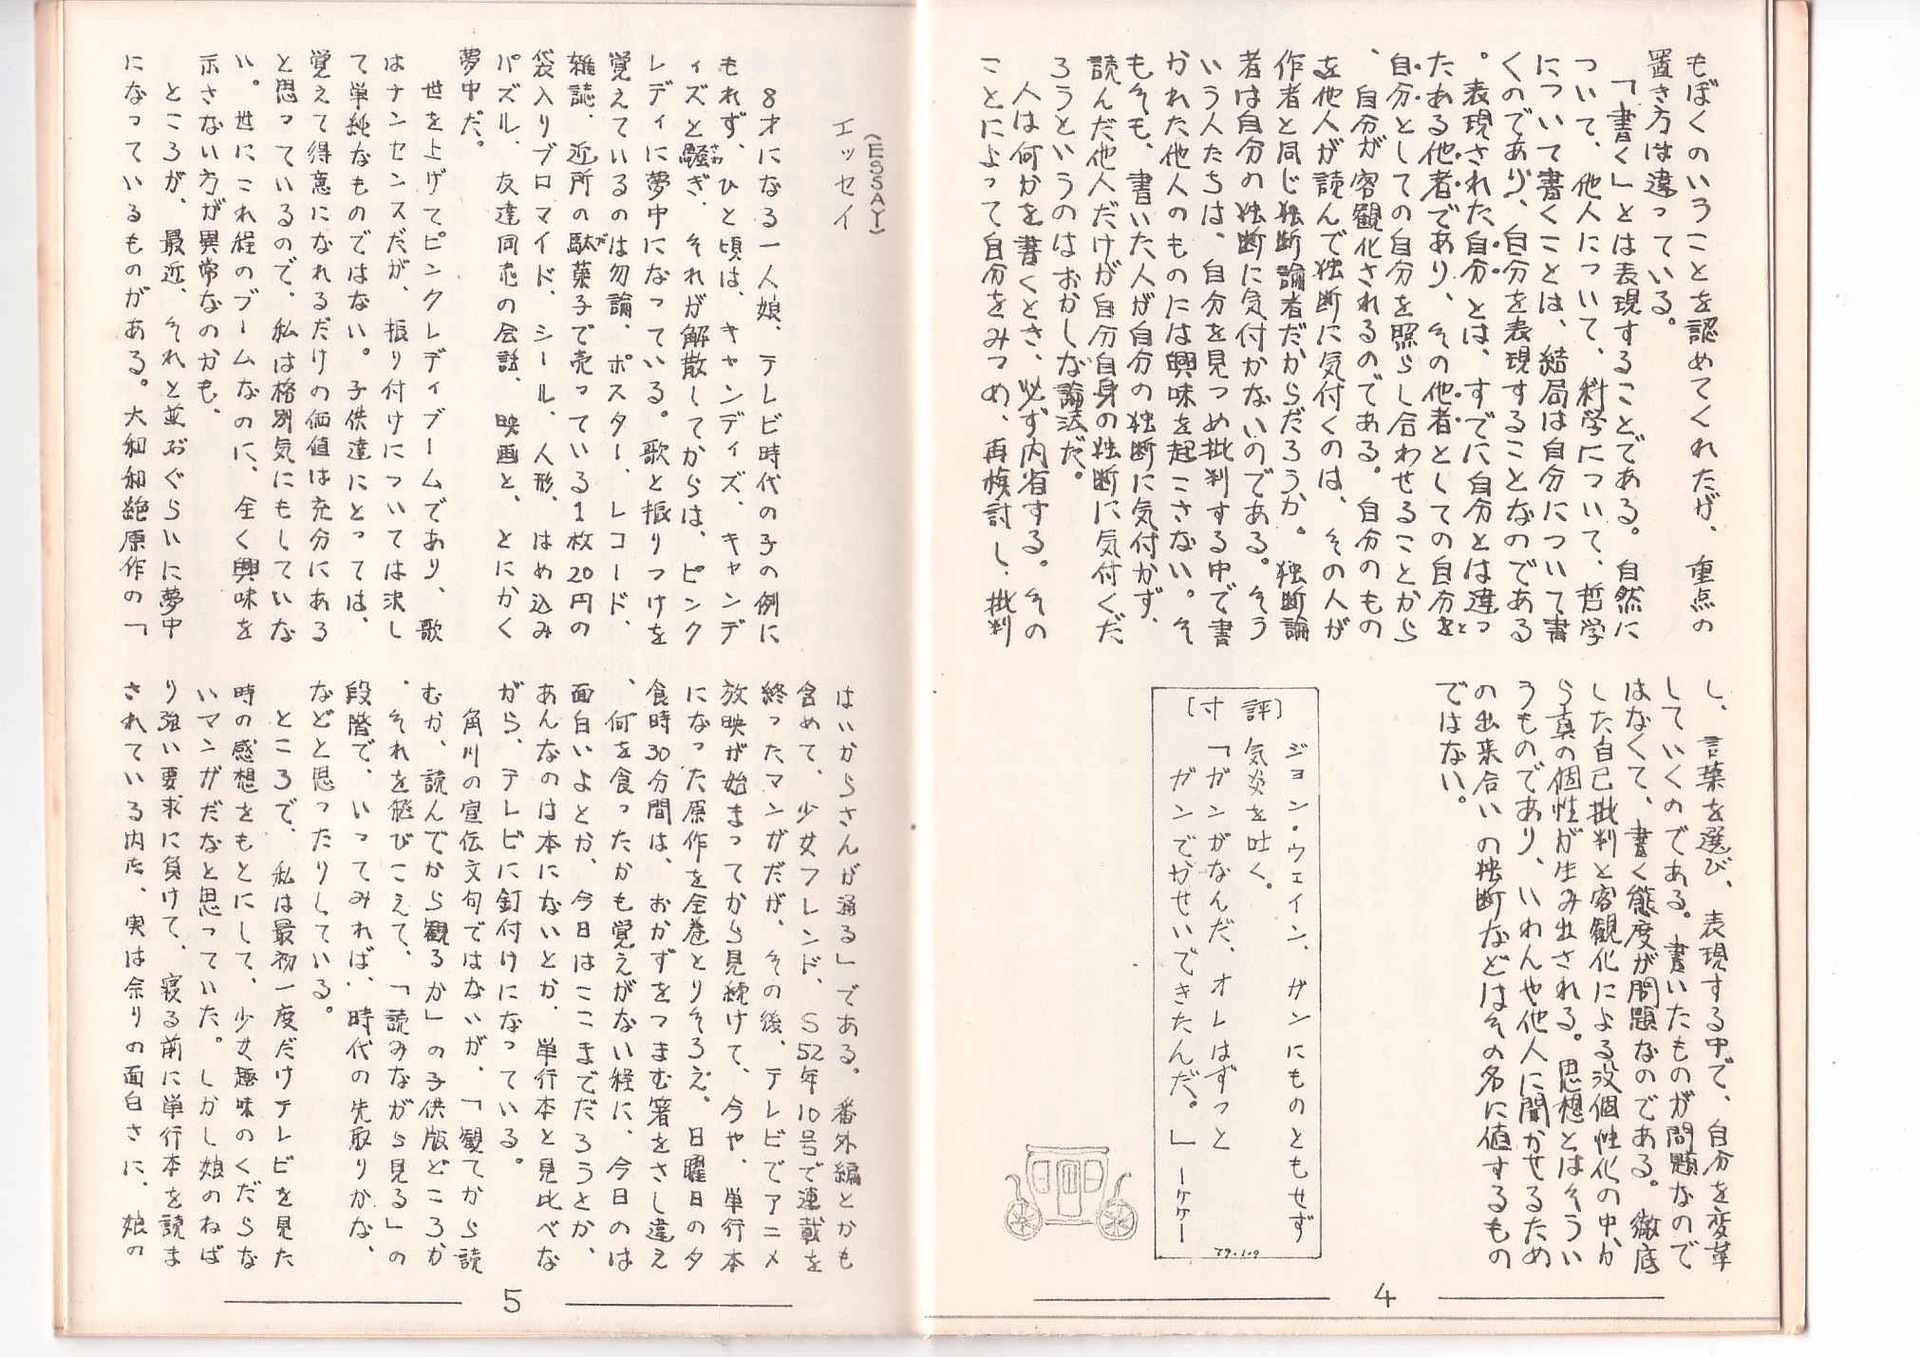 もぼくのいうことを認めてくれたが、重点の
置き方は違っている。
「書く」とは表現することである。自然に
ついて、他人について、科学について、哲学
について書くことは、結局は自分について書
くのであり、自分を表現することなのである
。表現された自分とは、すでに自分とは違っ
たある他者であり、その他者としての自分を
自分としての自分を照らし合わせることから
、自分が客観化されるのである。自分のもの
を他人が読んで独断に気付くのは、その人が
作者と同じ独断論者だからだろうか。独断論
者は自分の独断に気付かないのである。そう
いう人たちは、自分を見つめ批判する中で書
かれた他人のものには興味を起こさない。そ
もそも、書いた人が自分の独断に気付かず、
読んだ他人だけが自分自身の独断に気付くだ
ろうというのはおかしな論法だ。
人は何かを書くとき、必ず内省する。その
ことによって自分をみつめ、再検討し、批判
し、言葉を選び、表現する中で、自分を変革
していくのである。書いたものが問題なので
はなくて、書く態度が問題なのである。徹底
した自己批判と客観化による没個性化の中か
ら真の個性が生み出される。思想とはそうい
うものであり、いわんや他人に聞かせるため
の出来合いの独断などはその名に値するもの
ではない。
[寸評]
ジョン・ウェイン、ガンにものともせず
気炎を吐く。
「ガンがなんだ、オレはずっと
ガンでかせいできたんだ。」―ケケ―
79.1.9
4
(ESSAY)
エッセイ
8才になる一人娘、テレビ時代の子の例に
もれず、ひと頃は、キャンディズ、キャンデ
ィズと騒ぎ、それが解散してからは、ピンク
レディに夢中になっている。歌と振りつけを
覚えているのは勿論、ポスター、レコード、
雑誌、近所の駄菓子で売っている1枚20円の
袋入りブロマイド、シール、人形、はめ込み
パズル、友達同志の会話、映画と、とにかく
夢中だ。
世を上げてピンクレディブームであり、歌
はナンセンスだが、振り付けについては決し
て単純なものではない。子供達にとっては、
覚えて得意になれるだけの価値は充分にある
と思っているので、私は格別気にもしていな
い。世にこれ程のブームなのに、全く興味を
示さない方が異常なのかも、
ところが、最近、それと並ぶぐらいに夢中
になっているものがある。大和和紀原作の「
はいからさんが通る」である。番外編とかも
含めて、少女フレンド、S52年10号で連載を
終ったマンガだが、その後、テレビでアニメ
放映が始まってから見続けて、今や、単行本
になった原作を全巻とりそろえ。日曜日の夕
食時30分間は、おかずをつまむ箸をさし違え
、何を食ったかも覚えがない程に、今日のは
面白いよとか、今日はここまでだろうとか、
あんなのは本にないとか、単行本と見比べな
がら、テレビに釘付けになっている。
角川の宣伝文句ではないが、「観てから読
むか、読んでから観るか」の子供版どころか
、それを飛びこえて、「読みながら見る」の
段階で、いってみれば、時代の先取りかな、
などと思ったりしている。
ところで、私は最初一度だけテレビを見た
時の感想をもとにして、少女趣味のくだらな
いマンガだなと思っていた。しかし娘のねば
り強い要求に負けて、寝る前に単行本を読ま
されている内に、実は余りの面白さに、娘の
5